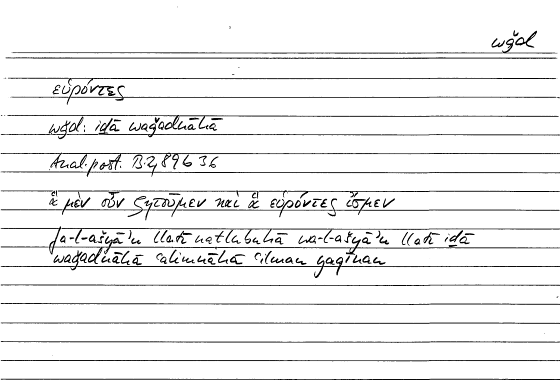 wǧd
εὑρόντες
wǧd: iḏā waǧadnāhā
Anal. post. B 2, 89 b 36
ἃ μὲν οὖν ζητοῦμεν καὶ ἃ εὑρόντες ἴσμεν
fa-l-ašyāʾu llatī naṭlubuhā wa-l-ašyāʾu llatī iḏā
waǧadnāhā ʿalimnāhā ʿilman yaqīnan